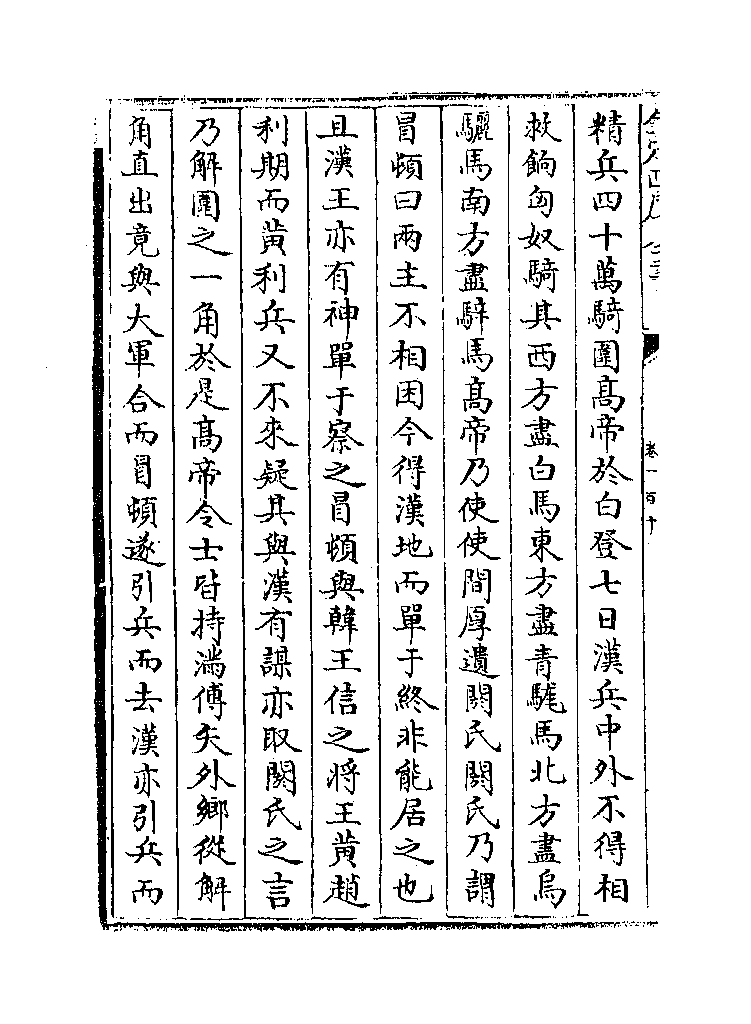 精兵四十萬騎圍髙帝於白登七日漢兵中外不得相
救餉匈奴騎其西方盡白馬東方盡青駹馬北方盡烏
驪馬南方盡騂馬髙帝乃使使間厚遺閼氏閼氏乃謂
冒頓曰兩主不相困今得漢地而單于終非能居之也
且漢王亦有神單于察之冒頓與韓王信之將王黄趙
利期而黄利兵又不來疑其與漢有謀亦取閼氏之言
乃解圍之一角於是髙帝令士皆持滿傅矢外鄉從解
角直出竟與大軍合而冒頓遂引兵而去漢亦引兵而
卷一百十